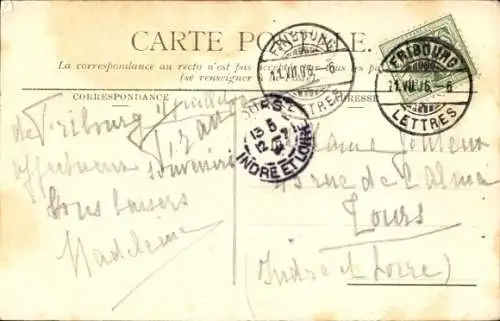 CARTE POSTALE.
La correspondance au recto n'est pas acceptée
(se renseigner à
CORRESPONDANCE
ADRESSE
FRIBOURG
11.VII.
LETTRES
FRIBOURG
11.VII.
LETTRES
TOURS
INDRE ET LOIRE
de Fribourg
affectueux souvenirs
Bons baisers
Madeleine
Madame
rue de l'Alma
Tours
(Indre et Loire)